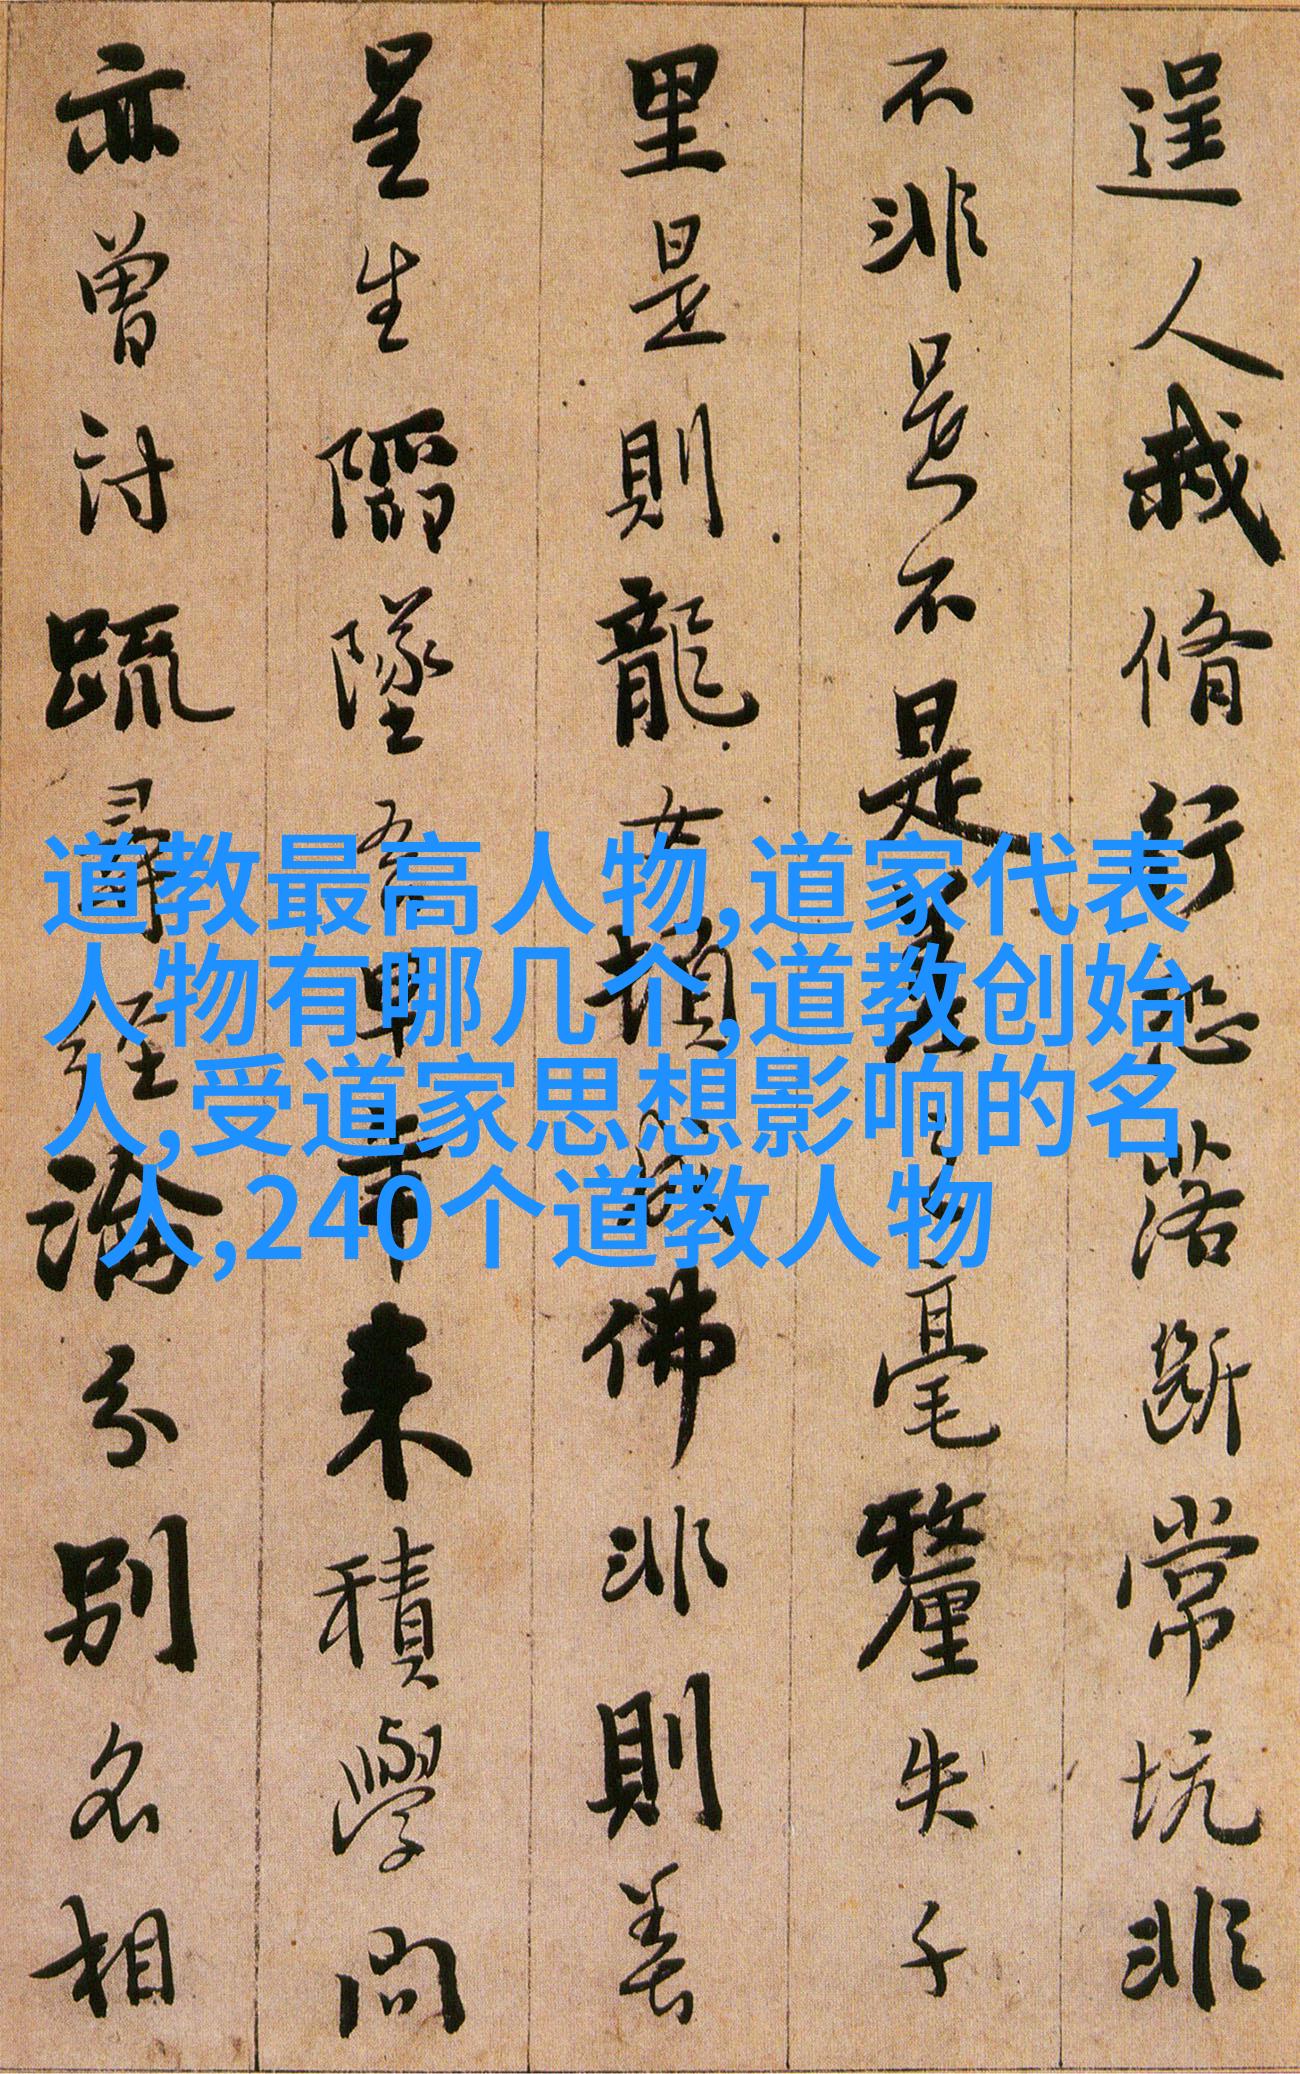 逞人我脩行恐落斷常坑非
不非是不是差之毫釐失千
里是則龍女頓成佛非則善
星生陷墜吾早年来積學問
亦曾討疏尋經論分別名相
道教最高人物,道家代表
人物有哪几个,道教创始
人,受道家思想影响的名
人,240个道教人物